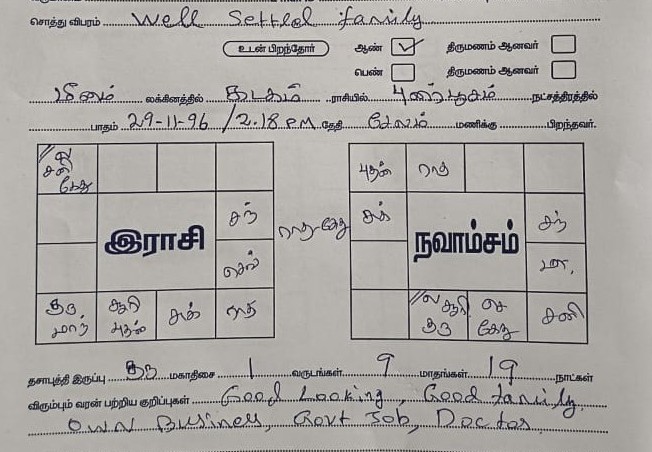 சொத்து விபரம் Well Settled family
உடன் பிறந்தோர் ஆண் ✓ திருமணம் ஆனவர்
பெண் திருமணம் ஆனவர்
மீனம் லக்கினத்தில் கடகம் ராசியில் புனர்பூசம் நட்சத்திரத்தில்
பாதம் 29-11-96 / 2.18 PM தேதி சேலம் மணிக்கு பிறந்தவர்.
ல
சனி
கேது
புதன் ராகு
சந் சுக் சந்
இராசி ராகு-கேது நவாம்சம்
செவ் மா.
குரு
மாந்
சூரி
புதன்
சுக் ராகு
ல சூரி
குரு
செ
கேது
சனி
தசாபுத்தி இருப்பு குரு மகாதிசை 1 வருடங்கள் 9 மாதங்கள் 19 நாட்கள்
விரும்பும் வரன் பற்றிய குறிப்புகள் Good Looking, Good family
Own Business, Govt Job, Doctor